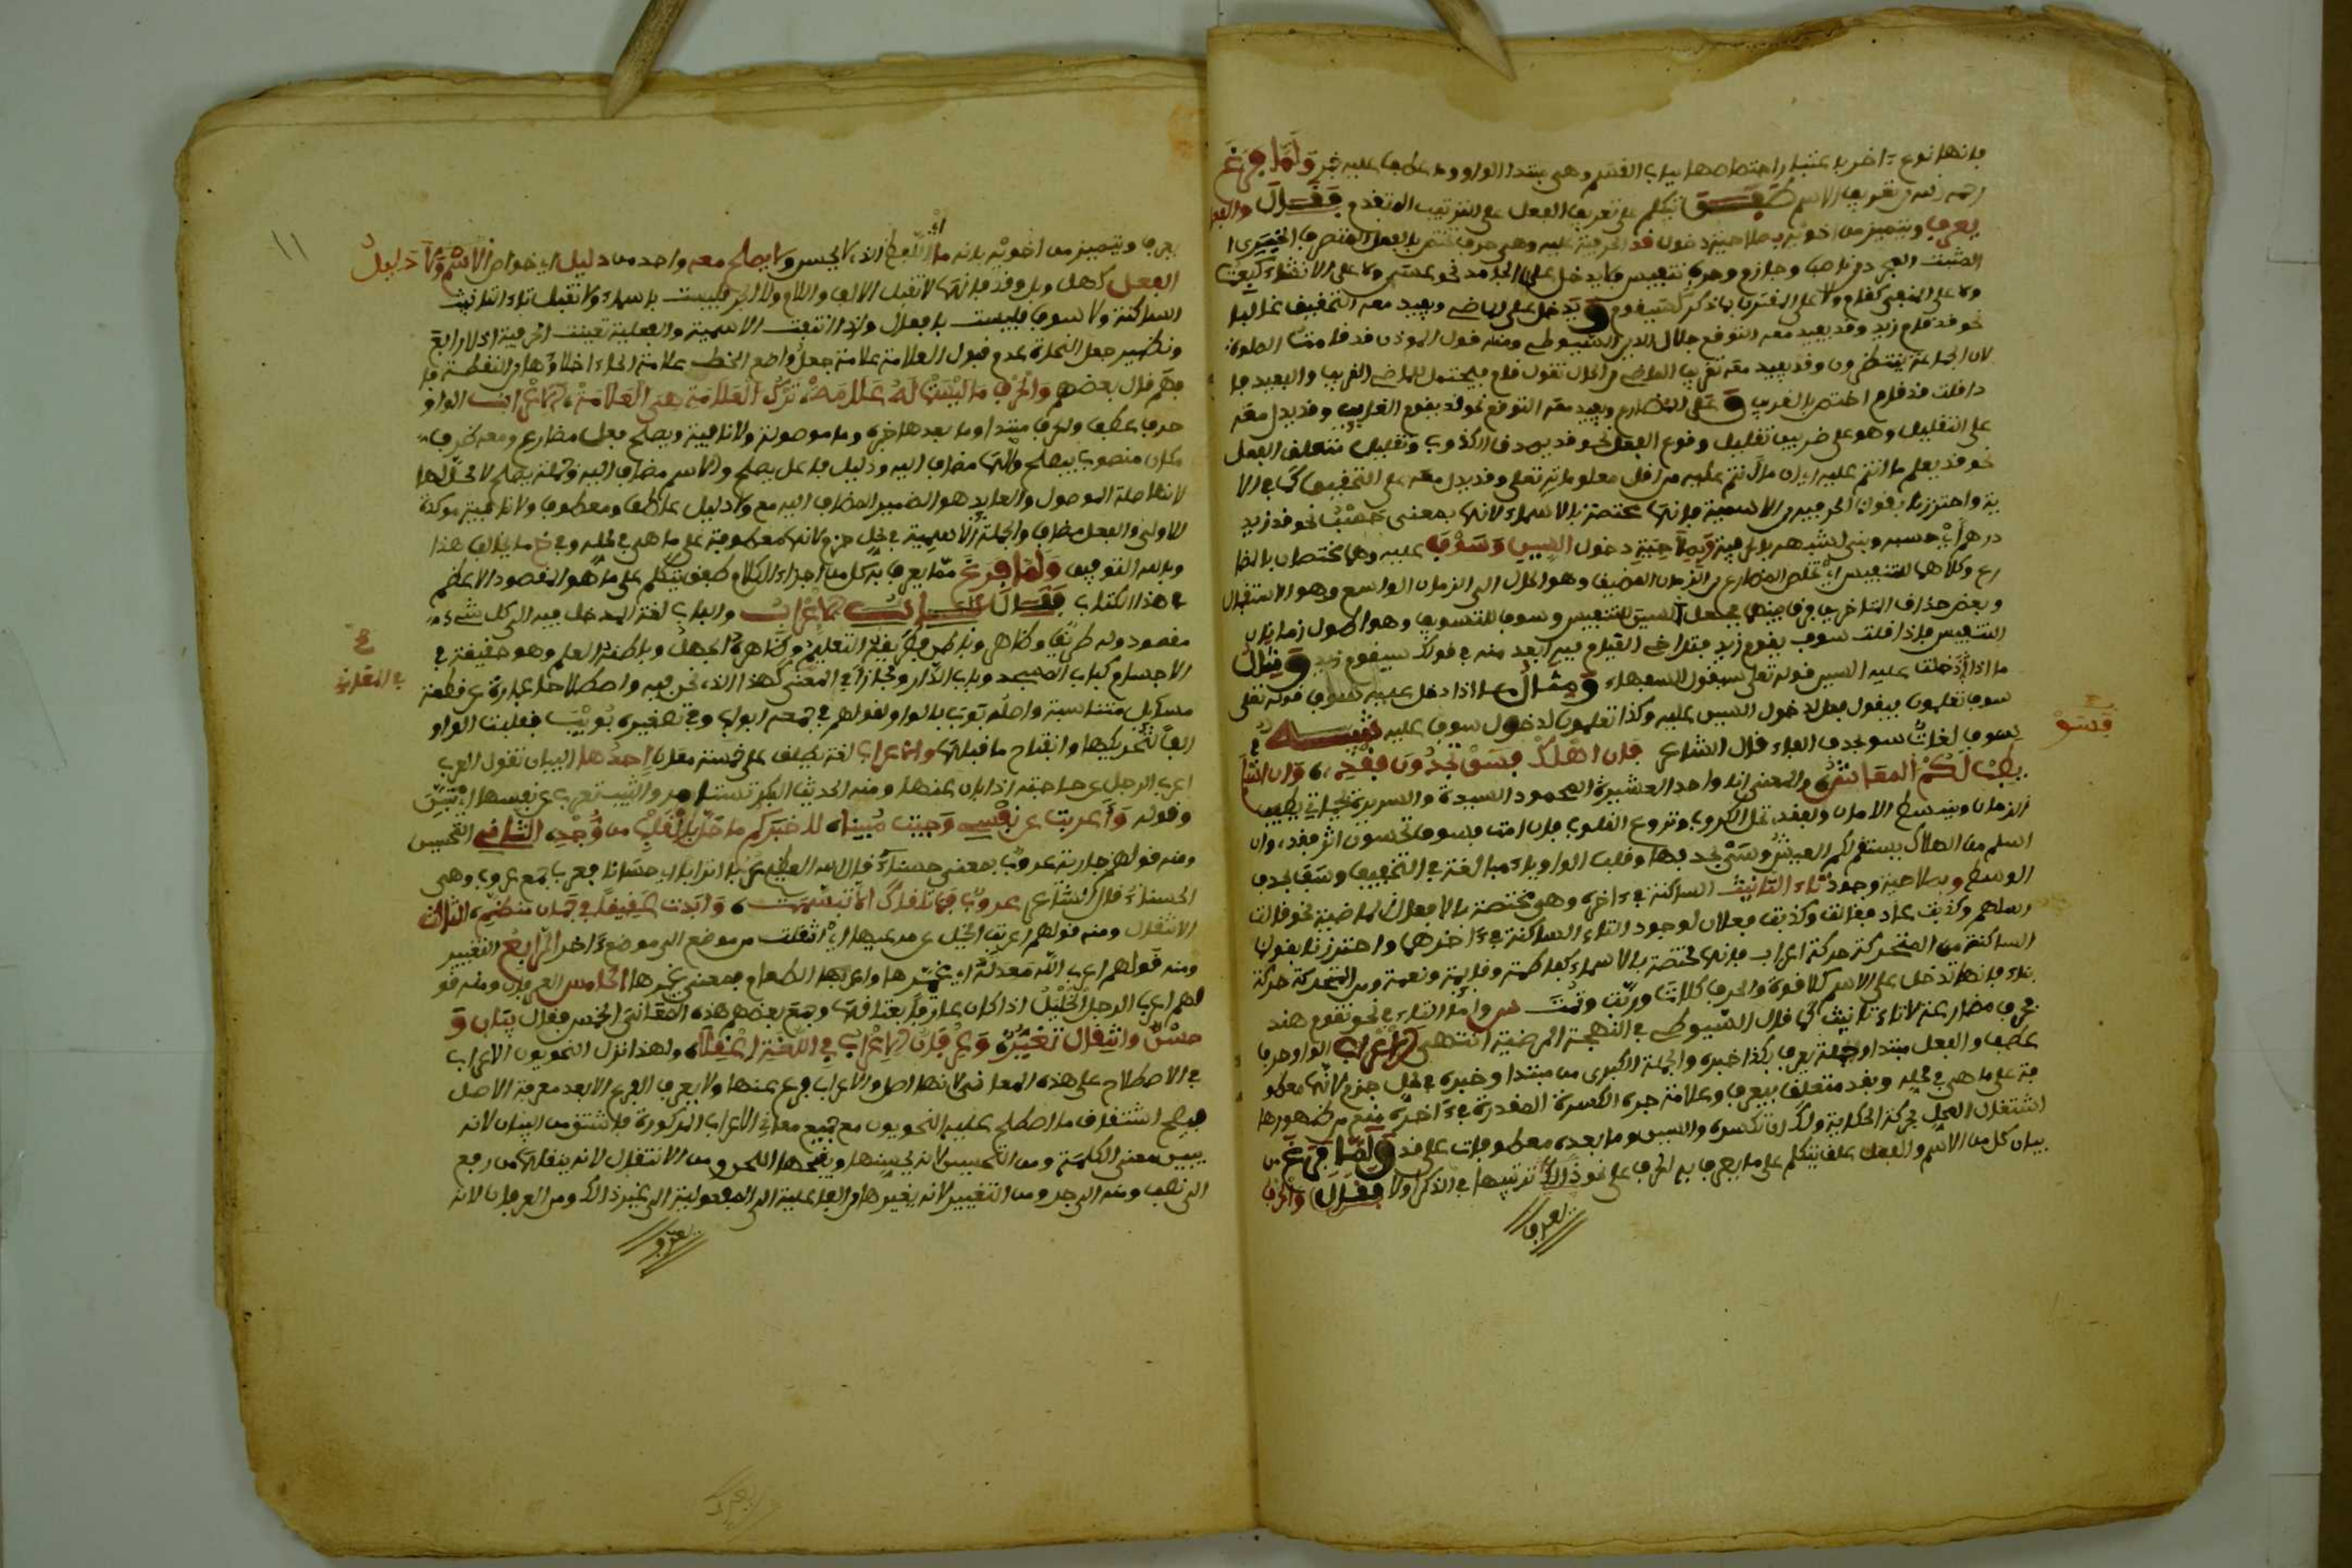 فإنها نوع آخر باعتبار اختصاصها بباب القسم وهي مبتدا الواو وما عطف عليه خبر ولما فرغ
رحمه الله من تعريف الاسم طفق يتكلم على تعريف الفعل على الترتيب المتقدم فقال والفعل
يعرف ويتميز من أخويه بصلاحية دخول قد الحرفية عليه وهي حرف تختص بالفعل المتصرف الخبري
المثبت المجرد من ناصب وجازم وحرف تنفيس فلا يدخل على الجامد نحو عسى ولا على الانشاء كبعت
ولا على المنفي كقام ولا على المقترن بما ذكر كسيقوم ويدخل على الماضي ويفيد معه التحقيق غالبا
نحو قد قام زيد وقد يفيد معه التوقع جلال الدين السيوطي ومنه قول المؤذن قد قامت الصلوة
لأن الجماعة ينتظرون وقد يفيد معه تقريب الماضي من الحال تقول قام فيحتمل الماضي القريب والبعيد فإ
ذا قلت قد قام اختص بالقريب وعلى المضارع ويفيد معه التوقع نحو قد يقوم الغايب وقد يدل معه
على التقليل وهو على ضربين تقليل وقوع الفعل نحو قد يصدق الكذوب وتقليل متعلق الفعل
نحو قد يعلم ما انتم عليه اي ان ما انتم عليه من اقل معلوماته تعلى وقد يدل معه على التحقيق كما في الآ
ية واحترزنا بقولنا الحرفية من الاسمية فإنها مختصة بالاسماء لانها بمعنى حسب نحو قد زيد
درهم أي حسبه وبني لشبهه بالحرفية وبصلاحية دخول السين وسوف عليه وهما مختصان بالمضا
رع وكلاهما للتنفيس أي تخلص المضارع من الزمان الضيق وهو الحال الى الزمان الواسع وهو الاستقبال
وبعض حذاق المتأخرين فرق بينهما فجعل السين للتنفيس وسوف للتسويف وهو اطول زمانا من
التنفيس فإذا قلت سوف يقوم زيد فتراخي القيام فيه ابعد منه في قولك سيقوم زيد ومثال
ما اذا دخلت عليه السين قوله تعلى سيقول السفهاء ومثال ما اذا دخل عليه سوف قوله تعلى
سوف تعلمون فيقول فعل لدخول السين عليه وكذا تعلمون لدخول سوف عليه تنبيه في
سوف لغات سو بحذف الفاء قال الشاعر فإن اهلك فسو تجدون فقدي وان اسلم
يطب لكم المعاش والمعنى انا واحد العشيرة المحمود السيرة والسريرة بحياتي يطيب
الزمان وينبسط الامان وبفقدي تحل الكروب وتروع القلوب فإن امت فسوف تحسون اثر فقدي وان
اسلم من الهلاك يستقم لكم العيش وسي بحذفها وقلب الواو ياء مبالغة في التخفيف وسف بحذف
الوسط وبصلاحية وجود تاء التأنيث الساكنة في ءاخره وهي مختصة بالافعال الماضية نحو قالت
رسلهم وكذبت عاد فقالت وكذبت فعلان لوجود التاء الساكنة في ءاخرهما واحترزنا بقولنا
الساكنة من المتحركة حركة اعراب فإنها مختصة بالاسماء كفاطمة وقايمة ونعمة ومن المتحركة حركة
بناء فإنها تدخل على الاسم كلا قوة والحرف كلات وربت وثمت واما التاء في نحو تقوم هند
فحرف مضارعة لا تاء تأنيث كما قال السيوطي في البهجة المرضية انتهى الاعراب الواو حرف
عطف والفعل مبتدا وجملة يعرف بكذا خبره والجملة الكبرى من مبتدا وخبره في محل جزم لانها معطو
فة على ما هي في محله وبقد متعلق بيعرف وعلامة جره الكسرة المقدرة في ءاخره منع من ظهورها
اشتغال المحل بحركة الحكاية ولك ان تكسره والسين وما بعده معطوفات على قد ولما فرغ من
بيان كل من الاسم والفعل علف يتكلم على ما يعرف به الحرف على نحو ذلك ترتيبها في الذكر اولا فقال والحرف
يعرف
فسو
١١
يعرف ويتميز من اخويه بانه ما اي اللفظ الذي لا يحسن ولا يصلح معه واحد من دليل اي خواص الاسم ولا دليل
الفعل كهل وبل وقد فإنها لا تقبل الالف واللام ولا الجر فليست باسماء ولا تقبل تاء التأنيث
الساكنة ولا سوف فليست بافعال واذا انتفت الاسمية والفعلية تعينت الحرفية اذ لا رابع
ونظير جعل النحاة عدم قبول العلامة علامة جعل واضع الخط علامة الحاء اخلاءها من النقطة فا
فهم قال بعضهم والحرف ما ليست له علامة ترك العلامة هي العلامة الاعراب الواو
حرف عطف والحرف مبتدا وما بعدها خبره وما موصولة ولا نافية ويصلح فعل مضارع ومعه ظرف
مكان منصوب بيصلح والهاء مضاف اليه ودليل فاعل يصلح والاسم مضاف اليه وجملة يصلح لا محل لها
لانها صلة الموصول والعايد هو الضمير المضاف اليه مع ولا دليل عاطف ومعطوف ولا نافية موكدة
للاولى والفعل مضاف والجملة الاسمية في محل جزم لانها معطوفة على ما هي في محله وفي خ ما يخالف هذا
وبالله التوفيق ولما فرغ مما يعرف به كل من اجزاء الكلام طفق يتكلم على ما هو المقصود الاعظم
في هذا الكتاب فقال باب الاعراب والباب لغة المدخل فيه الى كل شيء
مقصود وله طريق وظاهر وباطن فطريقه التعليم وظاهره الجهل وباطنه العلم وهو حقيقة في
الاجسام كباب المسجد وباب الدار ومجازا في المعنى كهذا الذي نحن فيه واصطلاحا عبارة عن قطعة
مسايل متناسبة واصله بوب بالواو لقولهم في جمعه ابواب وفي تصغيره بويب فقلبت الواو
الفا لتحريكها وانفتاح ما قبلها والاعراب لغة يطلق على خمسة معان احدها البيان تقول العرب
اعرب الرجل عن حاجته اذا ابان عنها ومنه الحديث البكر تستامر والثيب تعرب عن نفسها اي تبين
وقوله واعربت عن نفسي وجيت مبينا لاخبركم ما حل بالقلب من وجد الثاني التحسين
ومنه قولهم جارية عروب بمعنى حسناء قال الله العظيم عربا اترابا اي حسانا فعرب جمع عروب وهي
الحسناء قال الشاعر عروب فما تلقاك الا تبسمت وابدت عقيقا في جمان منظم الثالث
الانتقال ومنه قولهم اعربت الخيل عن مرعيها اي انتقلت من موضع الى موضع ءاخر الرابع التغيير
ومنه قولهم اعرب الله معدته اي غيرها واعربها الطعام بمعنى غيرها الخامس العرفان ومنه قو
لهم اعرب الرجل الخيل اذا كان عارفا بعتاقها وجمع بعضهم هذه المعاني الخمس فقال بيان و
حسن وانتقال تغير وعرفان الاعراب في اللغة اعقلا ولهذا نزل النحويون الاعراب
في الاصطلاح على هذه المعاني لانها اصل والاعراب فرع عنها ولا يعرف الفرع الا بعد معرفة الاصل
فيصح اشتقاق ما اصطلح عليه النحويون مع جميع معاني الاعراب المذكورة فاشتق من البيان لانه
يبين معنى الكلمة ومن التحسين لانه يحسنها ويقبحها اللحن ومن الانتقال لانه ينقلها من رفع
الى نصب ومنه الى جر ومن التغيير لانه يغيرها من الفاعلية الى المفعولية الى غير ذلك ومن العرفان لانه
يعرف